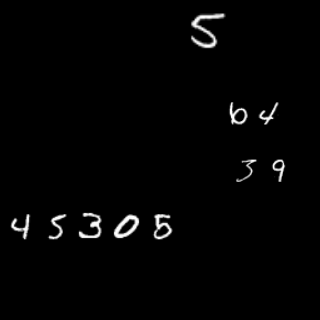 5
64
39
45305